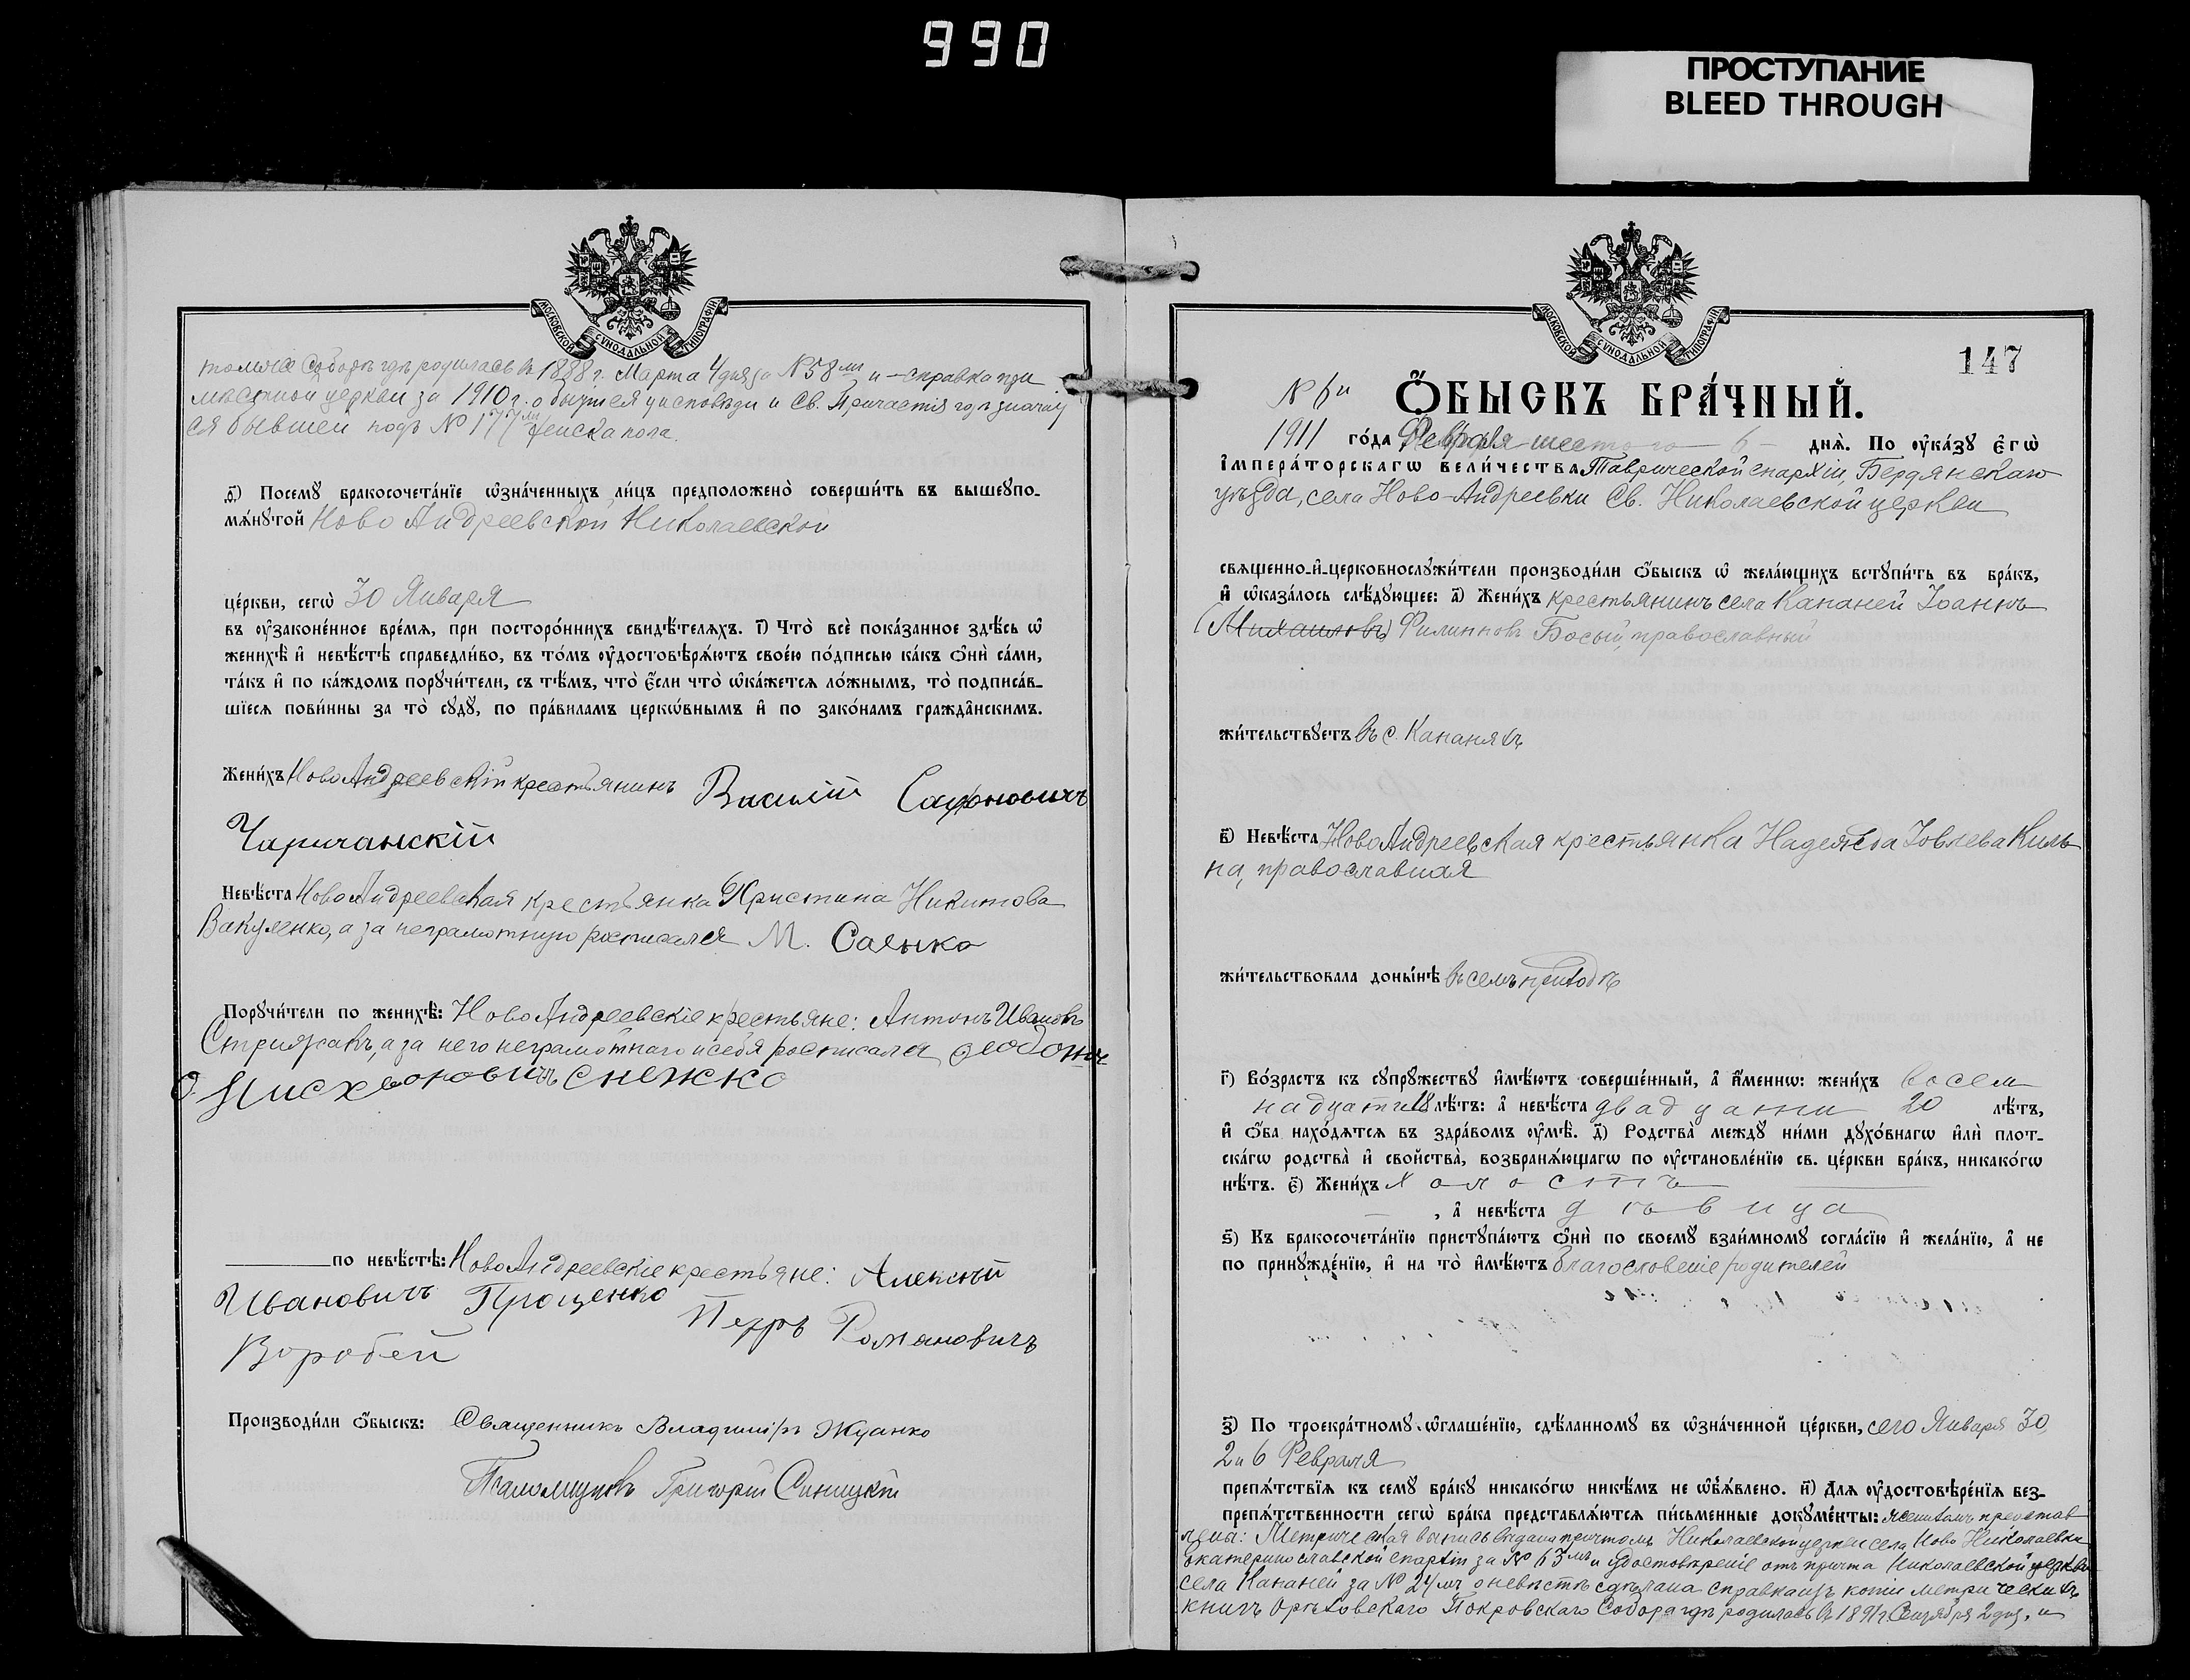 990
ПРОСТУПАНИЕ
BLEED THROUGH
МОСКОВСКОЙ СѴНОДАЛЬНОЙ ТИПОГРАФІИ
томъ же Соборѣ гдѣ родилась въ 1888 г. Марта 4 дня за № 58 мъ и справка при
мѣстной церкви за 1910 г. о бытіи ея у исповѣди и Св. Причастія гдѣ значит
ся бывшей подъ № 177 мъ женска пола.
д҃) Посемꙋ бракосочета́нїе ѡ҆зна́ченныхъ ли́цъ предположено̀ соверши́ть въ вышеꙋпо-
мѧ́нꙋтой Ново Андреевской Николаевской
це́ркви, сегѡ̀ 30 Января
въ ᲂу҆законе́нное вре́мѧ, при посторо́ннихъ свидѣ́телѧхъ. і҃) Что̀ всѐ пока́занное здѣ́сь ѡ҆
женихѣ̀ и҆ невѣ́стѣ справедли́во, въ то́мъ ᲂу҆достовѣрѧ́ютъ свое́ю по́дписью ка́къ ѻ҆нѝ са́ми,
та́къ и҆ по ка́ждомъ порꙋчи́тели, съ тѣ́мъ, что̀ є҆́сли что̀ ѡ҆ка́жетсѧ ло́жнымъ, то̀ подписа́в-
шїесѧ пови́нны за то̀ сꙋдꙋ̀, по пра́виламъ церкѡ́внымъ и҆ по зако́намъ гражда̑нскимъ.
Жени́хъ НовоАндреевскій крестьянинъ Василій Сафоновичъ
Чаричанскій
Невѣ́ста НовоАндреевская крестьянка Христина Никитова
Вакуленко, а за неграмотную росписался М. Саенко
Порꙋчи́тели по женихѣ̀: НовоАндреевскіе крестьяне: Антонъ Ивановъ
Стрижакъ, а за него неграмотнаго и себя росписался
Снежко
по невѣ́стѣ: НовоАндреевскіе крестьяне: Алексѣй
Ивановичъ Проценко Петръ Романовичъ
Воробей
Производи́ли ѻ҆́быскъ: Священникъ Владиміръ Жданко
Псаломщикъ Григорій Синицкій
МОСКОВСКОЙ СѴНОДАЛЬНОЙ ТИПОГРАФІИ
147
№ 6й
Ѻ҆́БЫСКЪ БРА́ЧНЫЙ.
1911 го́да Февраля шестого 6 днѧ̀. По ᲂу҆ка́зꙋ є҆гѡ̀
і҆мпера́торскагѡ вели́чества Таврической епархіи, Бердянскаго
уѣзда, села Ново-Андреевки Св. Николаевской церкви
свѧщенно-и҆-церковнослꙋжи́тели производи́ли ѻ҆́быскъ ѡ҆ жела́ющихъ встꙋпи́ть въ бра́къ,
и҆ ѡ҆каза́лось слѣ́дꙋющее: а҃) Жени́хъ крестьянинъ села Кананей Іоаннъ
(Михаиловъ) Филипповъ Босый, православный
жи́тельствꙋетъ въ с. Кананяхъ
в҃) Невѣ́ста НовоАндреевская крестьянка Надежда Іовлева Киль
на, православная
жи́тельствовала доны́нѣ въ семъ приходѣ
г҃) Во́зрастъ къ сꙋпрꙋ́жествꙋ и҆мѣ́ютъ соверше́нный, а҆ и҆́меннѡ: жени́хъ восем
надцати 18 лѣ́тъ: а҆ невѣ́ста двадцати 20 лѣ́тъ,
и҆ ѻ҆́ба нахо́дѧтсѧ въ здра́вомъ ᲂу҆мѣ̀. д҃) Родства̀ междꙋ̀ ни́ми дꙋхо́внагѡ и҆лѝ плот-
ска́гѡ родства̀ и҆ свойства̀, возбранѧ́ющагѡ по ᲂу҆становле́нїю св. це́ркви бра́къ, никако́гѡ
нѣ́тъ. є҃) Жени́хъ холостъ
, а҆ невѣ́ста дѣвица
ѕ҃) Къ бракосочета́нїю пристꙋпа́ютъ ѻ҆нѝ по своемꙋ̀ взаи́мномꙋ согла́сїю и҆ жела́нїю, а҆ не
по принꙋжде́нїю, и҆ на то̀ и҆мѣ́ютъ благословеніе родителей
з҃) По троекра́тномꙋ ѡ҆глаше́нїю, сдѣ́ланномꙋ въ ѡ҆зна́ченной це́ркви, сего Января 30,
2 и 6 Февраля
препѧ́тствїѧ къ семꙋ̀ бра́кꙋ никако́гѡ никѣ́мъ не ѡ҆б̾ѧ́влено. и҃) Длѧ ᲂу҆достовѣре́нїѧ без-
препѧ́тственности сегѡ̀ бра́ка представлѧ́ютсѧ пи́сьменные докꙋме́нты: женихомъ представ
лена: Метрическая выпись выдана причтомъ Николаевской церкви села Ново Николаевки
Екатеринославской епархіи за № 63 мъ и удостовѣреніе отъ причта Николаевской церкви
села Кананей за № 24 мъ о невѣстѣ сдѣлана справка изъ копи метрическихъ
книгъ Орѣховскаго Покровскаго Собора гдѣ родилась въ 1891 г. Сентября 2 дня, и